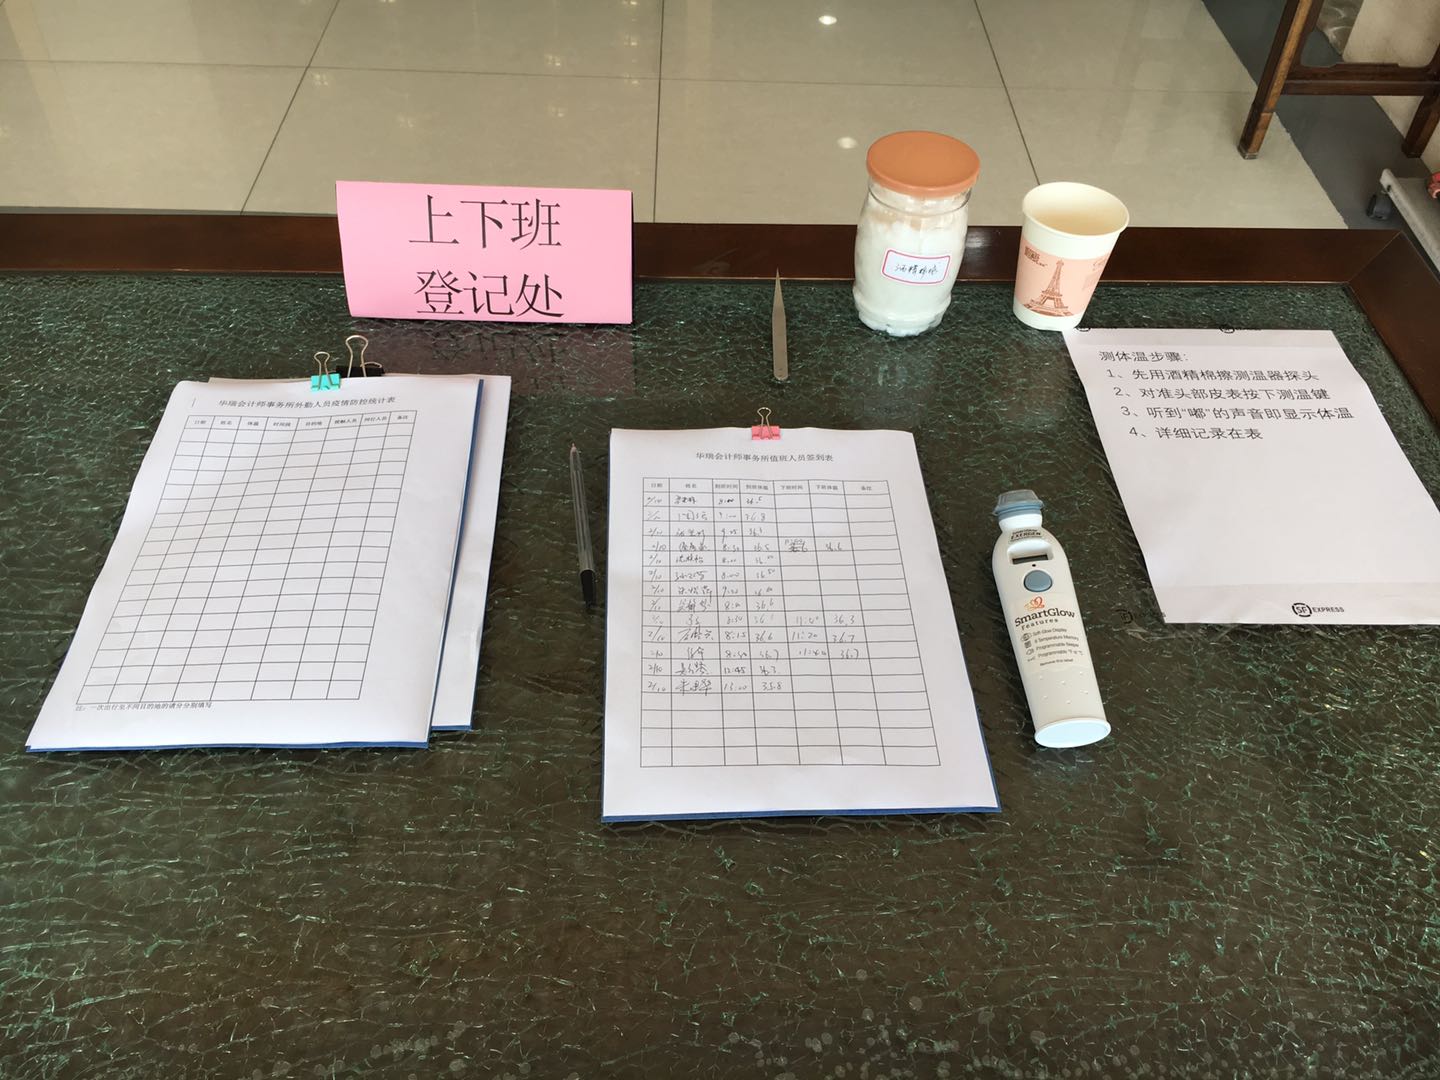 上下班
登记处
酒精棉
测体温步骤:
1、先用酒精棉擦测温器探头
2、对准头部皮表按下测温键
3、听到“嘟”的声音即显示体温
4、详细记录在表
SF EXPRESS
华瑞会计师事务所外勤人员疫情防控统计表
日期 姓名 体温 时间段 目的地 接触人员 同行人员 备注
注:一次出行至不同目的地的请分分别填写
华瑞会计师事务所值班人员签到表
日期 姓名 到班时间 到班体温 下班时间 下班体温 备注
2/10 8:00 36.5
9:00 36.8
2/11 9:05
2/10 8:30 36.5 36.6
2/11 8:00
2/10 8:00
2/10 9:30
2/11 8:00 36.6
8:30 36.3
2/10 8:15 36.6 11:20 36.7
2/10 8:40 36.7 36.7
2/10 12:45 36.3
2/10 13:00 35.8
EXERGEN
SmartGlow
Features
Soft Glow Display
8 Temperature Memory
Programmable Beeper
Programmable °F or °C